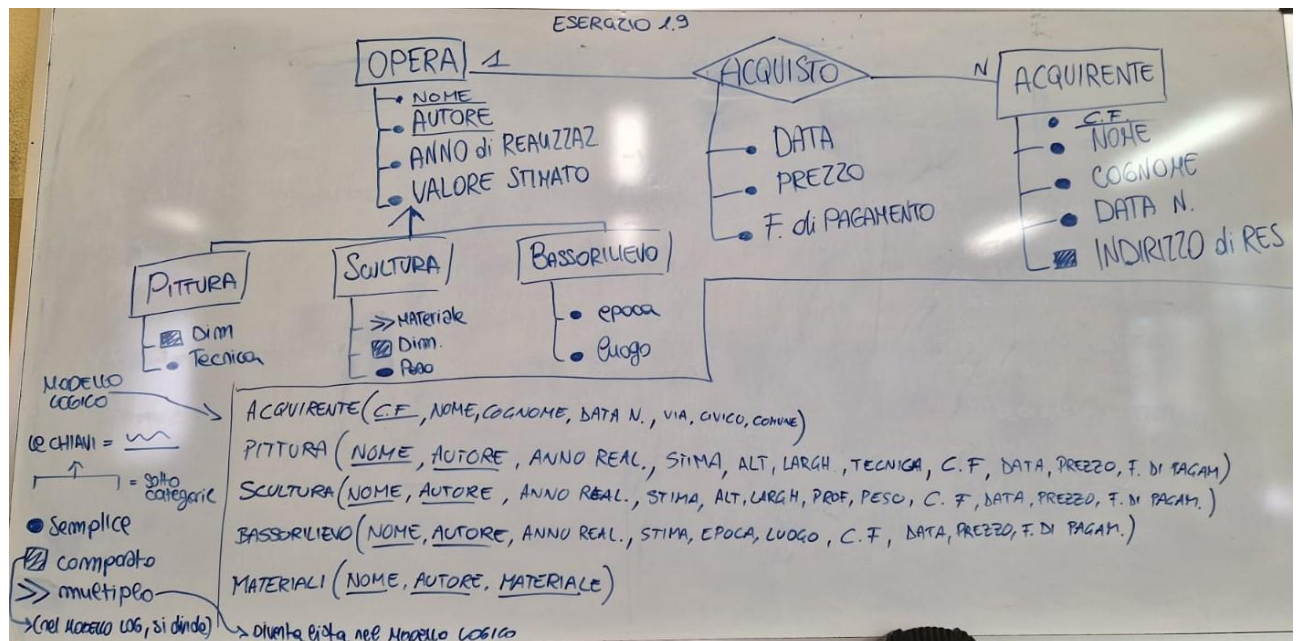 ESERCIZIO 1.9
OPERA 1 ACQUISTO N ACQUIRENTE
NOME
AUTORE
ANNO di REALIZZAZ
VALORE STIMATO
DATA
PREZZO
F. di PAGAMENTO
C.F.
NOME
COGNOME
DATA N.
INDIRIZZO di RES
PITTURA
Dim
Tecnica
SCULTURA
Materiale
Dim.
Peso
BASSORILIEVO
epoca
luogo
MODELLO
LOGICO
le CHIAVI =
= sotto
categorie
Semplice
composto
multiplo
(nel MODELLO LOG, si divide)
Diventa lista nel MODELLO LOGICO
ACQUIRENTE (C.F, NOME, COGNOME, DATA N., VIA, CIVICO, COMUNE)
PITTURA (NOME, AUTORE, ANNO REAL., STIMA, ALT, LARGH., TECNICA, C.F, DATA, PREZZO, F. DI PAGAM)
SCULTURA (NOME, AUTORE, ANNO REAL., STIMA, ALT, LARGH, PROF, PESO, C.F, DATA, PREZZO, F. DI PAGAM.)
BASSORILIEVO (NOME, AUTORE, ANNO REAL., STIMA, EPOCA, LUOGO, C.F, DATA, PREZZO, F. DI PAGAM.)
MATERIALI (NOME, AUTORE, MATERIALE)